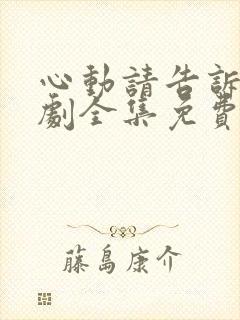 心動請告訴
劇全集免費
藤島康介